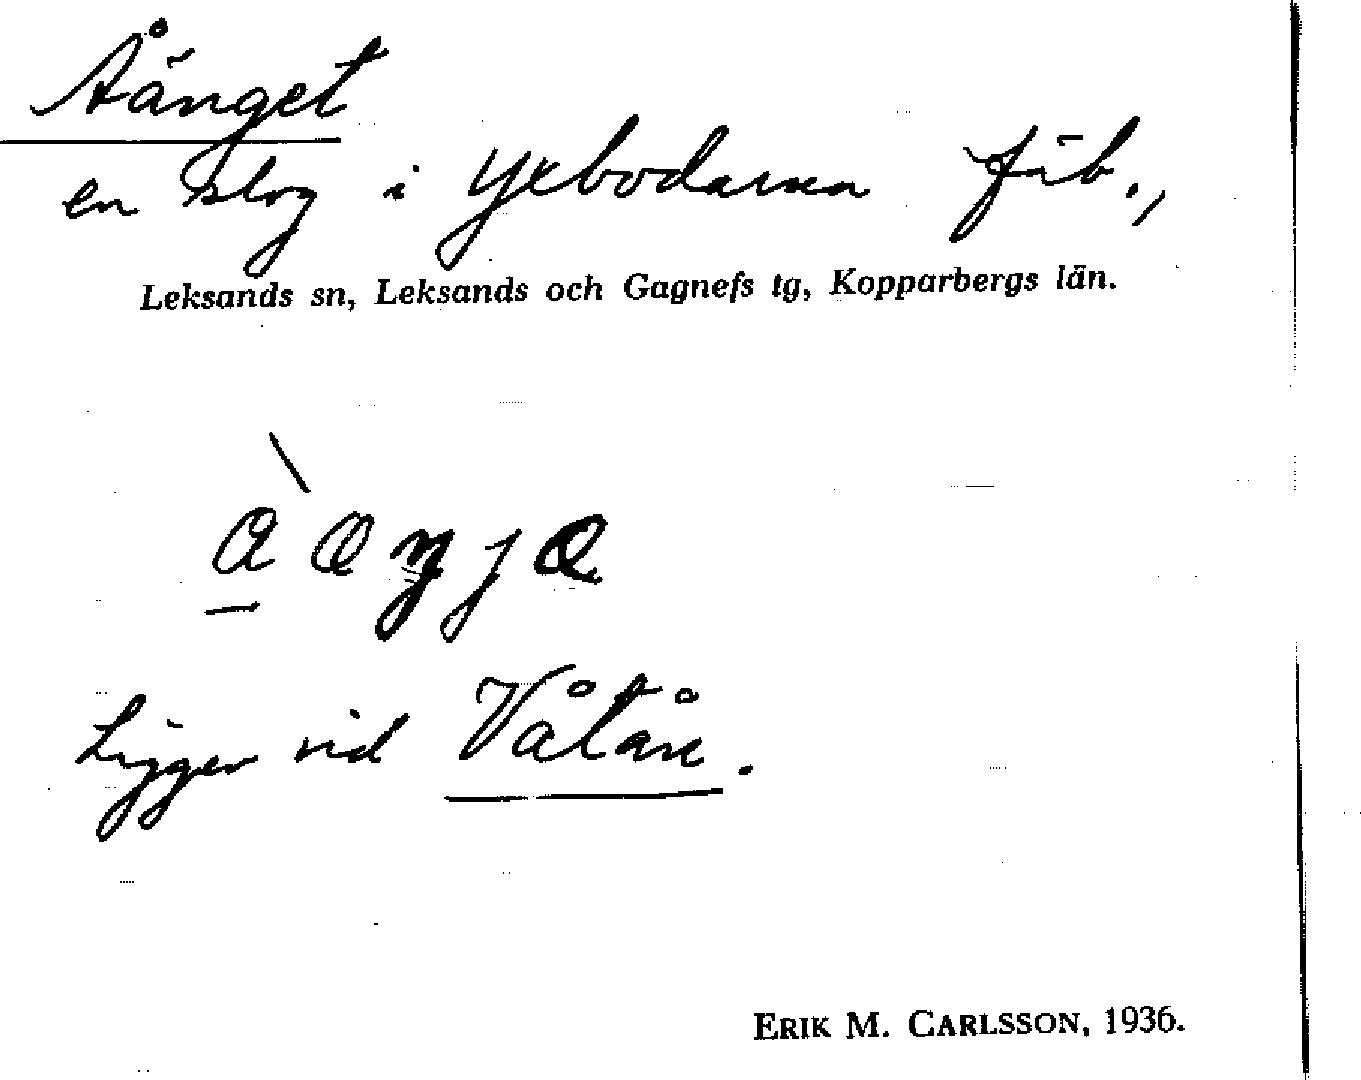 Åänget
en slog i Yxbodarna fäb.,
Leksands sn, Leksands och Gagnefs tg, Kopparbergs län.
Ligger vid Våtån.
ERIK M. CARLSSON, 1936.